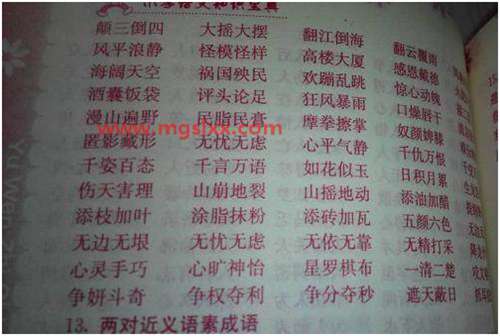 小学语文知识宝典
颠三倒四 大摇大摆 翻江倒海 翻云覆雨
风平浪静 怪模怪样 高楼大厦 感恩戴德
海阔天空 祸国殃民 欢蹦乱跳 惊心动魄
酒囊饭袋 评头论足 狂风暴雨 口燥唇干
漫山遍野 民脂民膏 摩拳擦掌 奴颜婢膝
www.mgslxx.com
匿影藏形 无忧无虑 心平气静 千仇万恨
千姿百态 千言万语 如花似玉 日积月累
伤天害理 山崩地裂 山摇地动 添油加醋
添枝加叶 涂脂抹粉 添砖加瓦 五颜六色
无边无垠 无忧无虑 无依无靠 无精打采
心灵手巧 心旷神怡 星罗棋布 一清二楚
争妍斗奇 争权夺利 争分夺秒 遮天蔽日
13. 两对近义语素成语